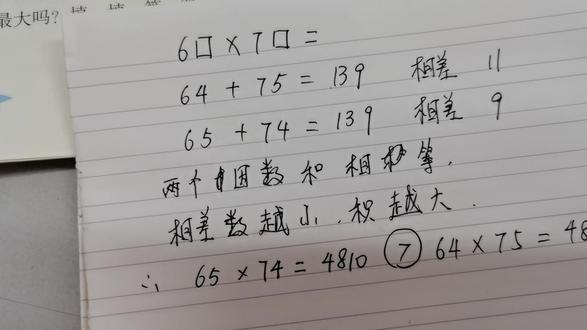 最大吗?
6口 × 7口 =
64 + 75 = 139 相差 11
65 + 74 = 139 相差 9
两个因数和相等.
相差数越小.积越大.
∴ 65 × 74 = 4810 > 64 × 75 = 48